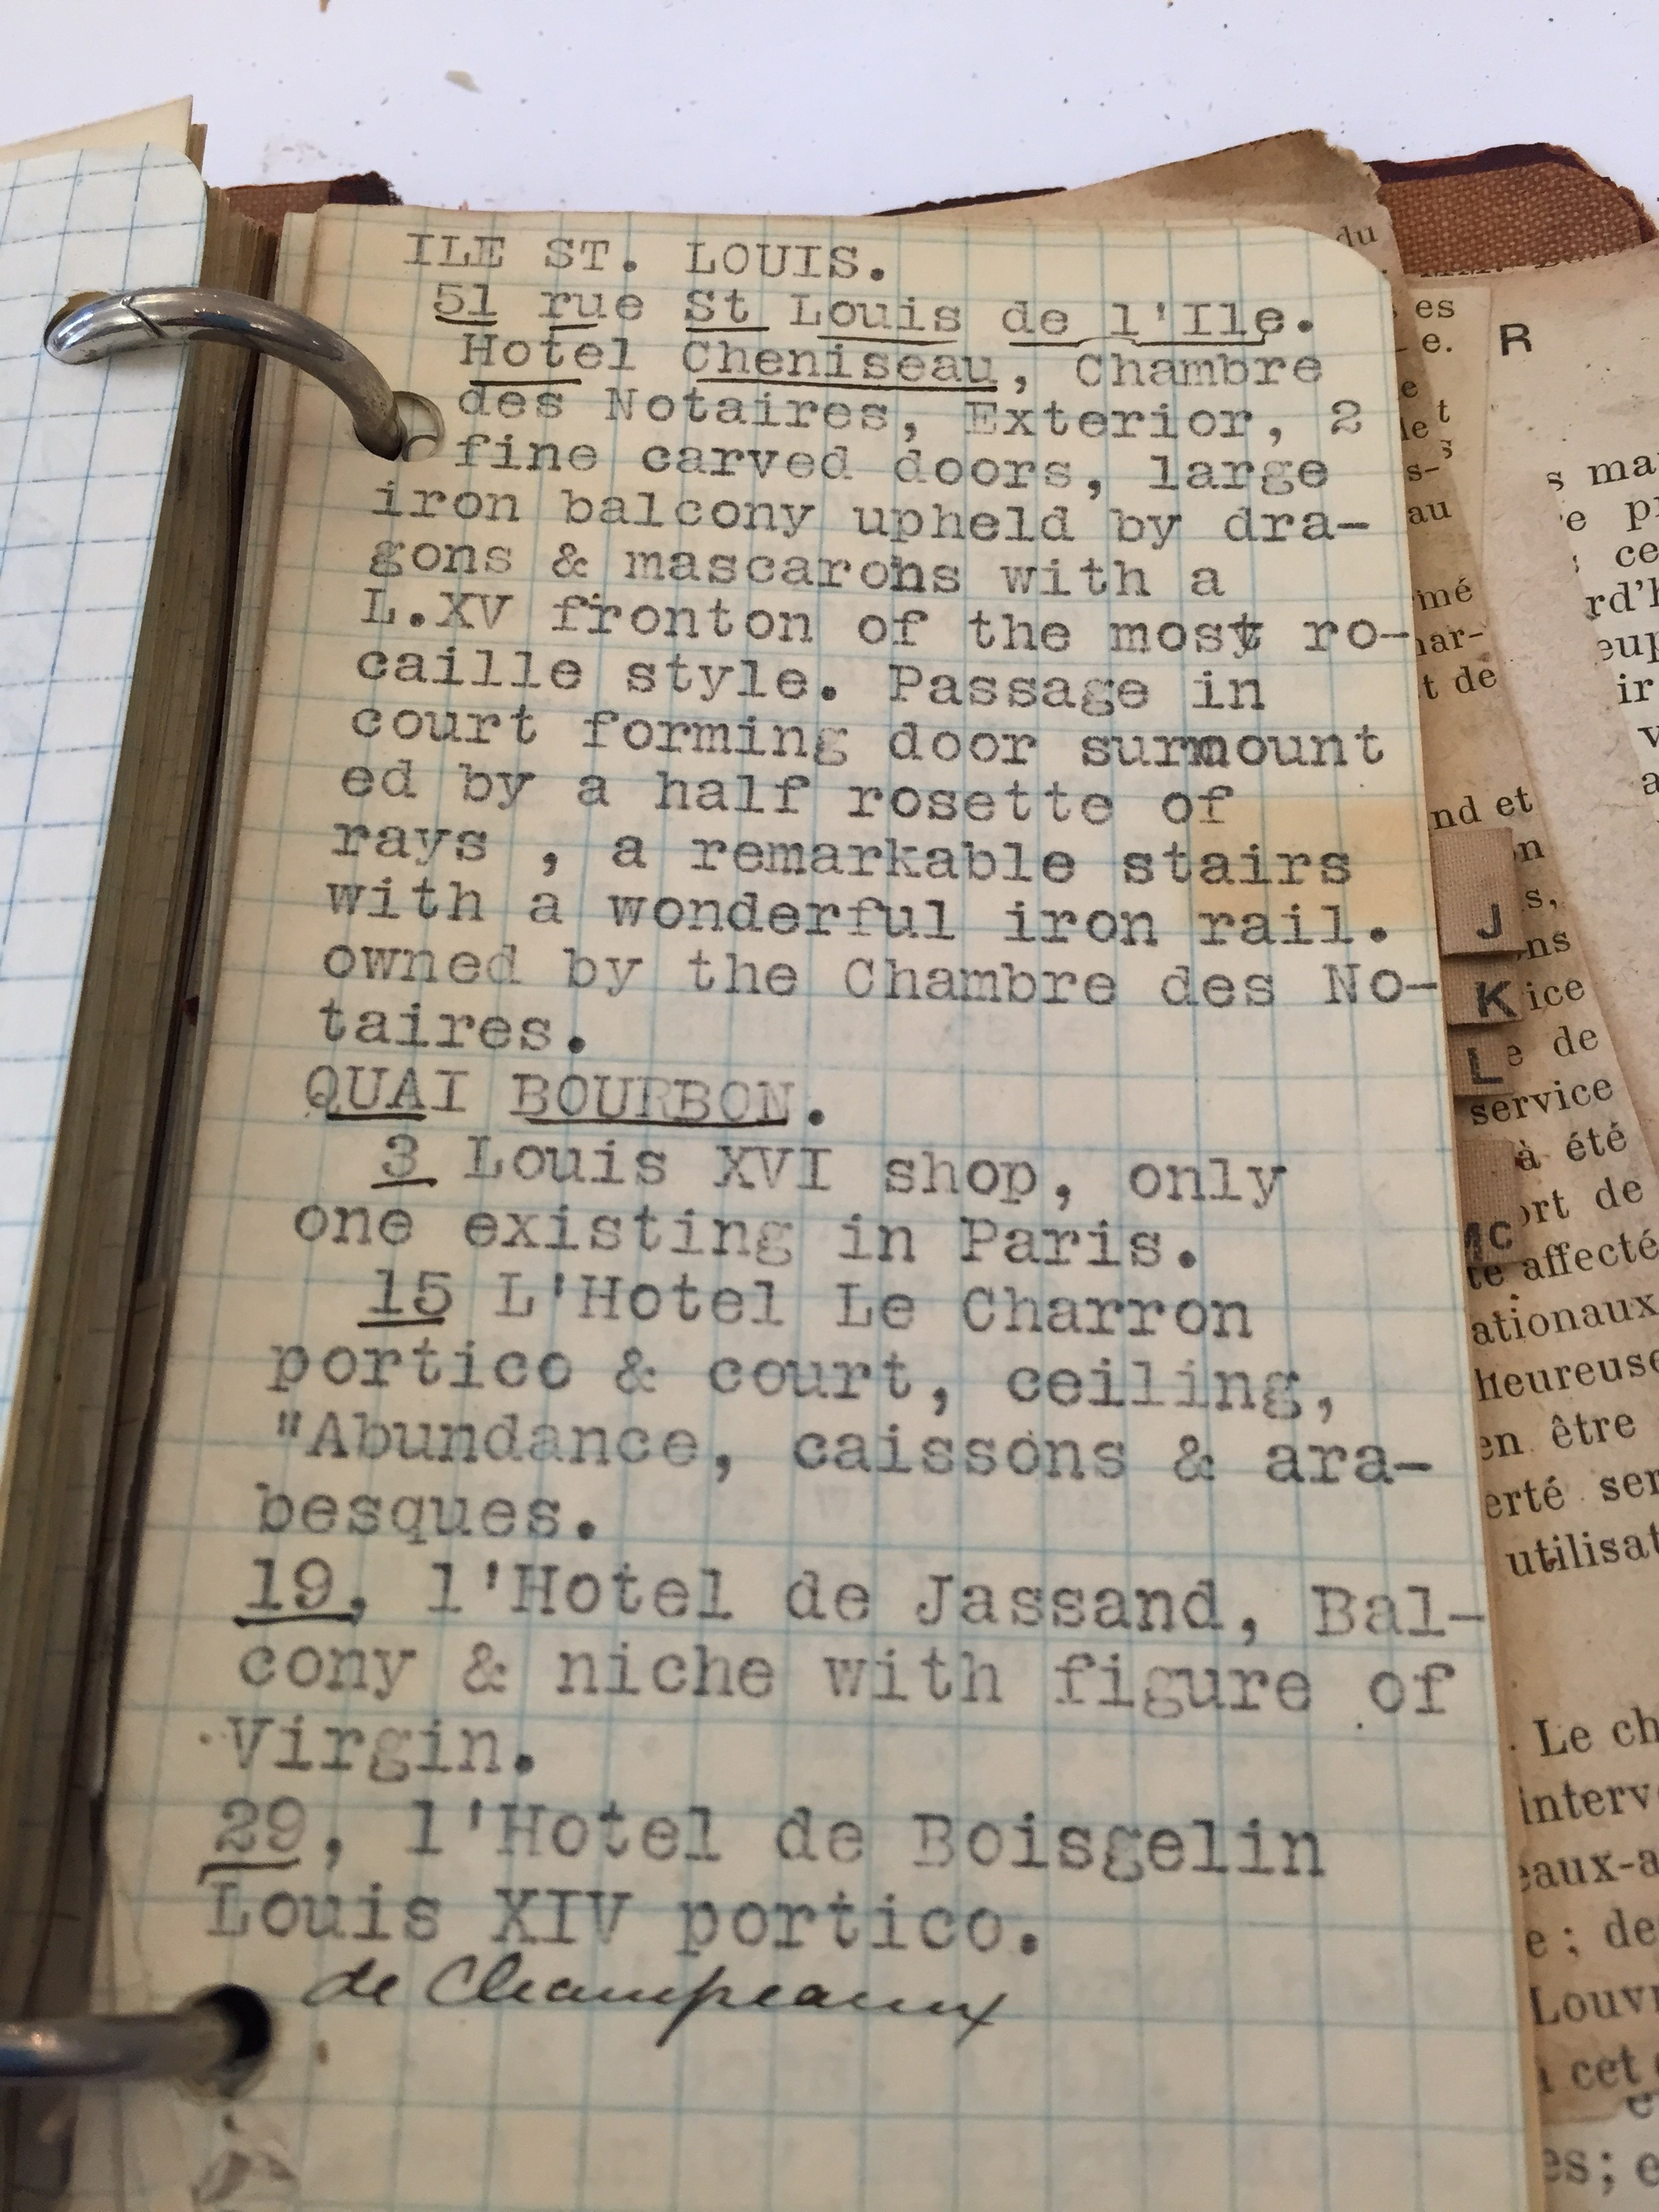 ILE ST. LOUIS.
51 rue St Louis de l'Ile.
Hotel Cheniseau, Chambre
des Notaires, Exterior, 2
fine carved doors, large
iron balcony upheld by dra-
gons & mascarons with a
L.XV fronton of the most ro-
caille style. Passage in
court forming door surmount
ed by a half rosette of
rays , a remarkable stairs
with a wonderful iron rail.
owned by the Chambre des No-
taires.
QUAI BOURBON.
3 Louis XVI shop, only
one existing in Paris.
15 L'Hotel Le Charron
portico & court, ceiling,
"Abundance, caissons & ara-
besques.
19, l'Hotel de Jassand, Bal-
cony & niche with figure of
Virgin.
29, l'Hotel de Boisgelin
Louis XIV portico.
de Champeaux
du
es
e.
R
au
mé
t de
nd et
J
K
ice
L
e de
service
à été
ort de
Mc
te affecté
ationaux
heureuse
en être
erté ser
utilisat
Le ch
interv
eaux-a
e ; de
Louvr
cet
es; e